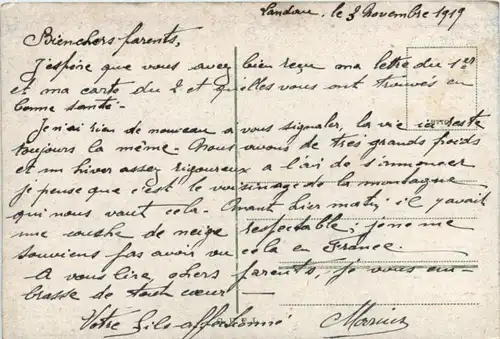 Landau, le 3 Novembre 1919
Bien chers parents,
J'espère que vous avez bien reçu ma lettre du 1er
et ma carte du 2 et qu'elles vous ont trouvés en
bonne santé-
Je n'ai rien de nouveau à vous signaler, la vie ici reste
toujours la même - Nous avons de très grands froids
et un hiver assez rigoureux a l'air de s'annoncer
je pense que c'est le voisinage de la montagne
qui nous vaut cela. Avant hier matin il y avait
une couche de neige respectable; je ne me
souviens pas avoir vu cela en France.
A vous lire, chers parents, je vous em-
brasse de tout cœur -
Votre fils affectionné
Marius